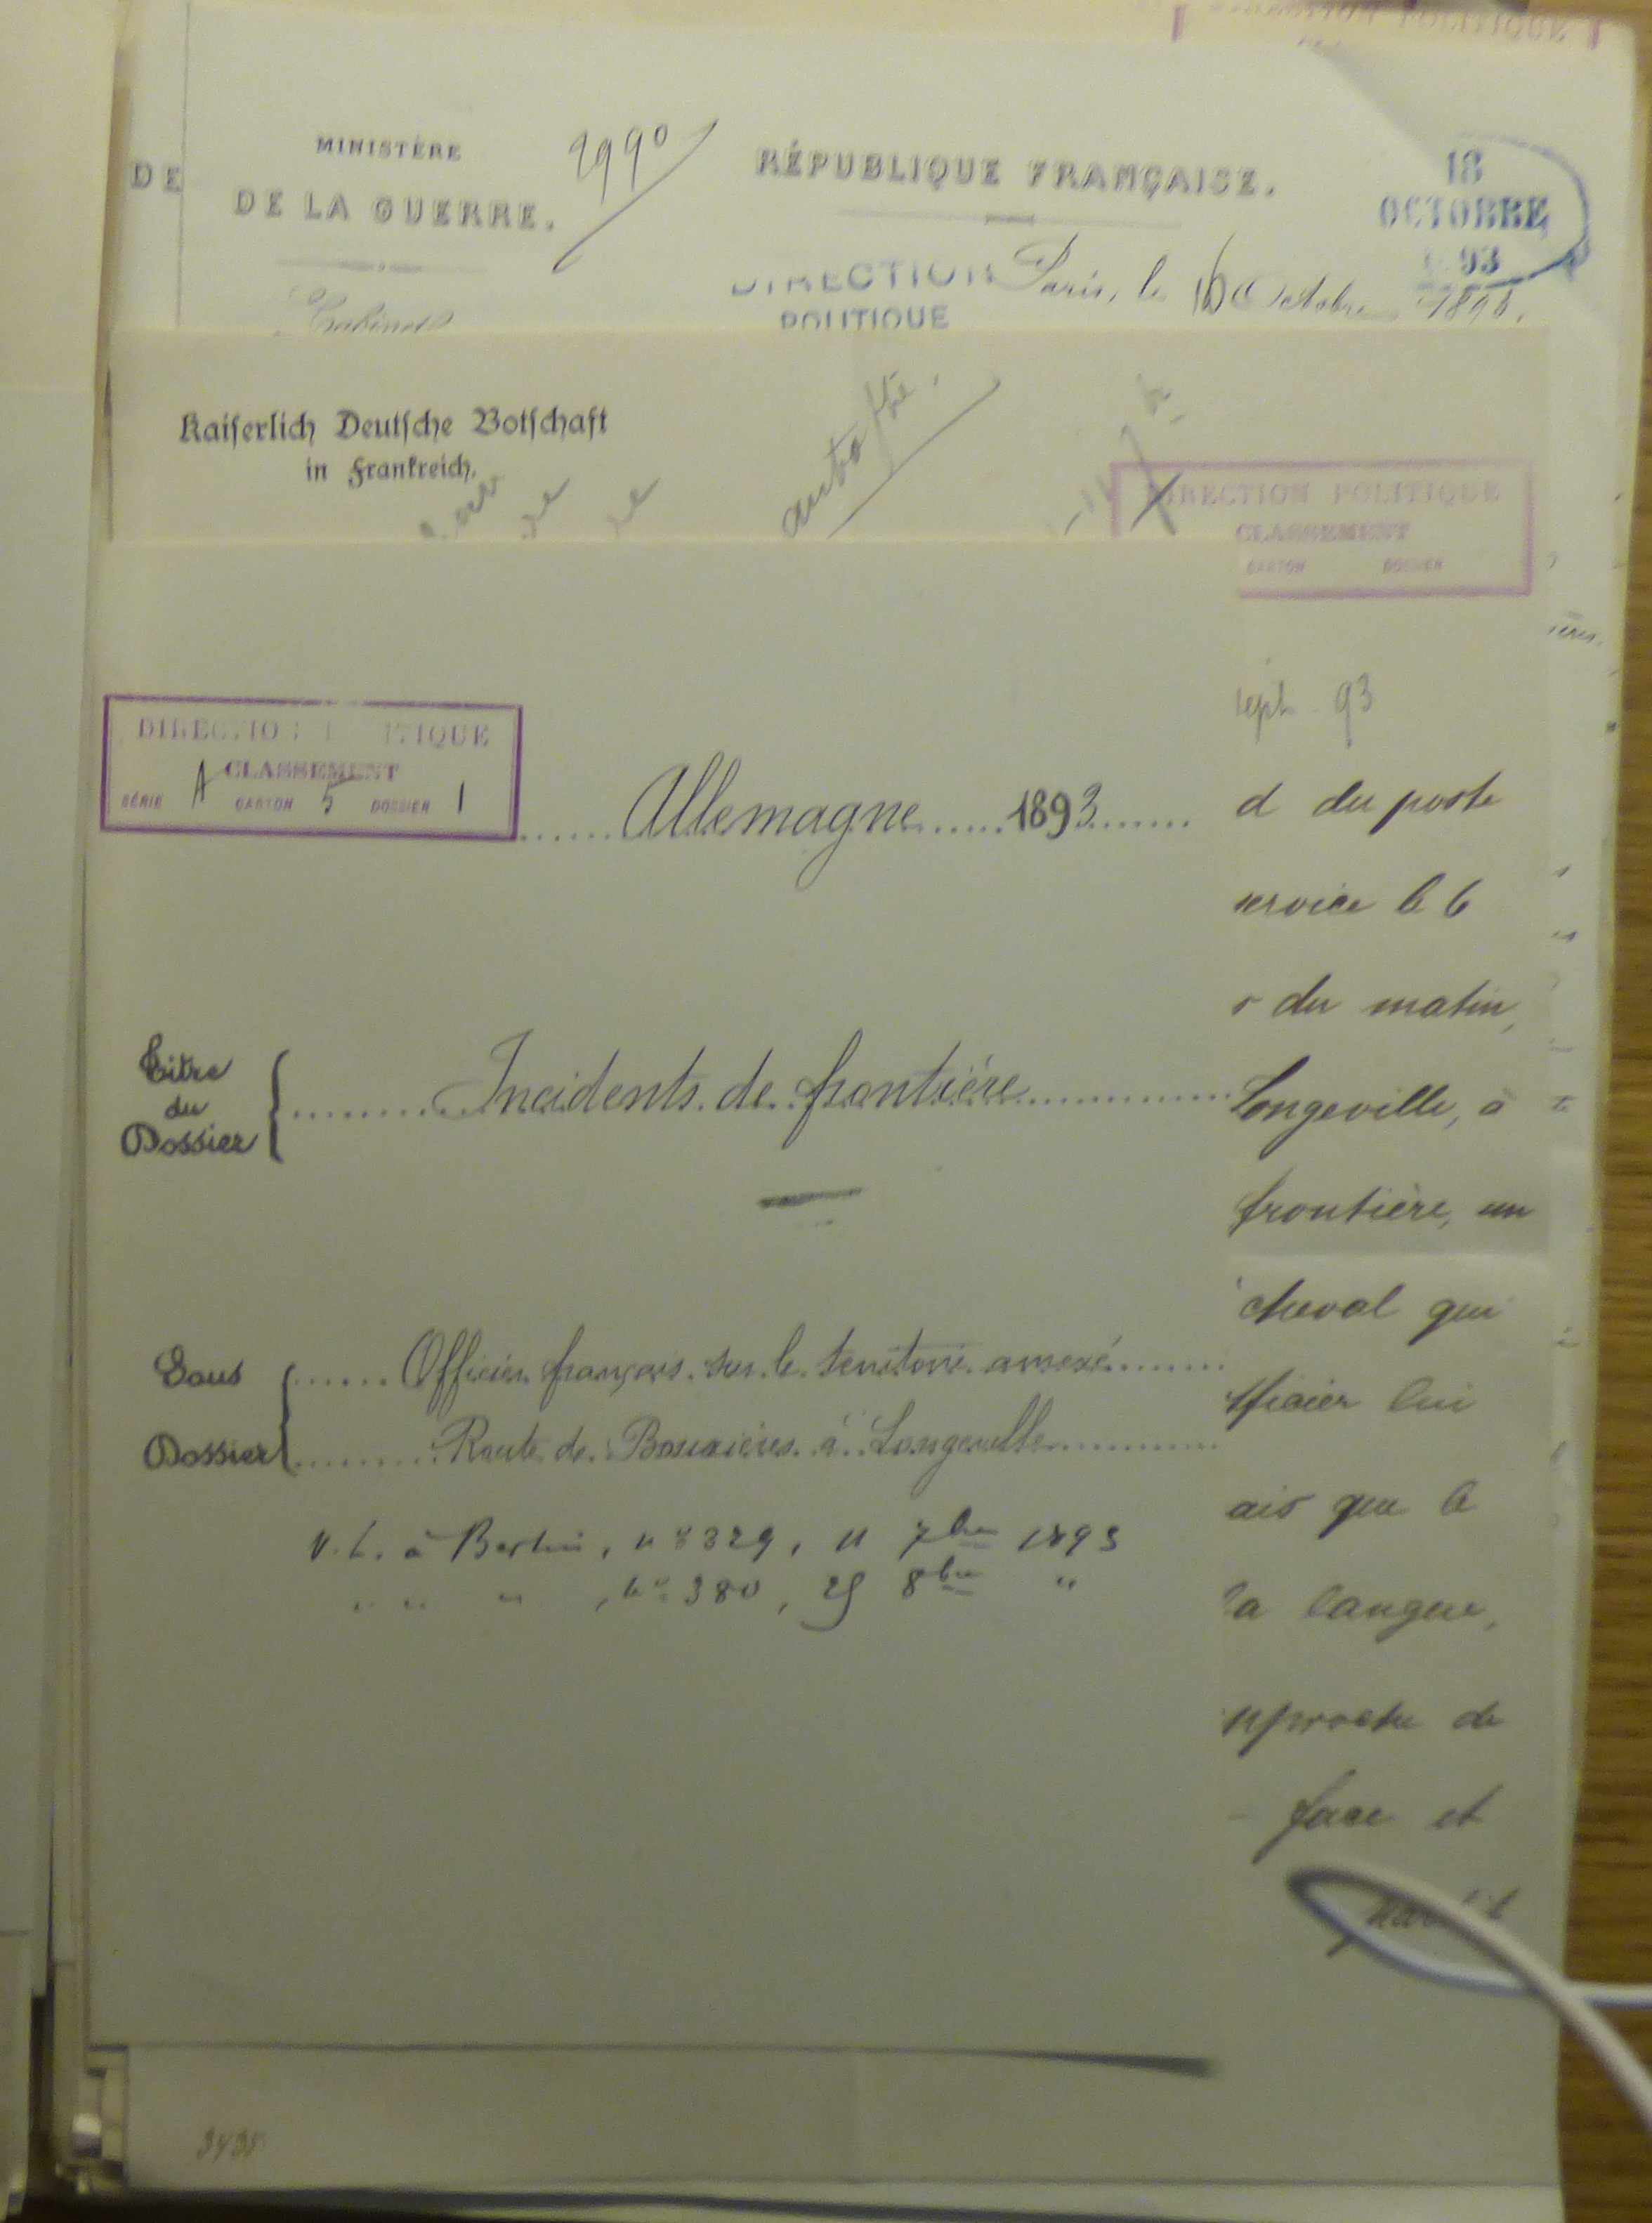 DIRECTION POLITIQUE
DE
MINISTÈRE
DE LA GUERRE.
2990
RÉPUBLIQUE FRANÇAISE.
18
OCTOBRE
93
DIRECTION
POLITIQUE
Paris, le 16 Octobre 1893.
Cabinet
Kaiserlich Deutsche Botschaft
in Frankreich.
DIRECTION POLITIQUE
CLASSEMENT
CARTON DOSSIER
sept. 93
DIRECTIO ITIQUE
CLASSEMENT
SÉRIE A CARTON 5 DOSSIER 1
Allemagne 1893
d du poste
ervice le 6
r du matin,
Titre
du
Dossier
Incidents de frontière
Longeville, à
frontière, un
cheval qui
Sous
Dossier
Officier français sur le territoire annexé
Route de Bouxières à Longeville
fficier lui
ais que le
V. L. à Berlin, n° 329, 11 7bre 1893
" " " , n° 380, 25 8bre "
la langue,
approche de
face et
3435